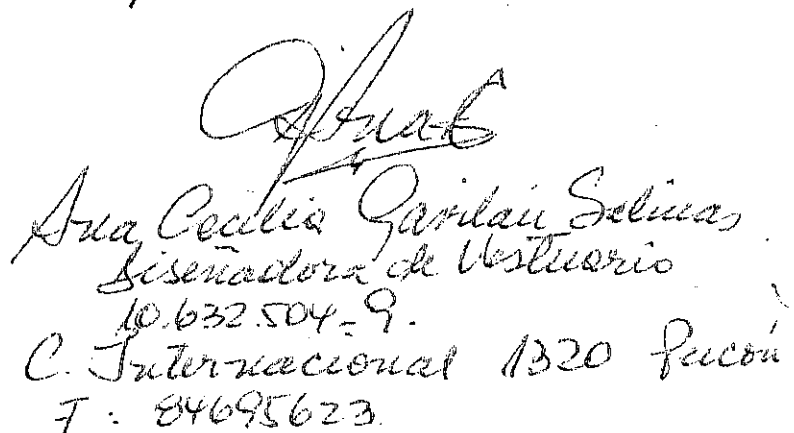 Ana Cecilia Gavilán Salinas
Diseñadora de Vestuario
10.632.504-9.
C. Internacional 1320 Pucón
F: 84695623